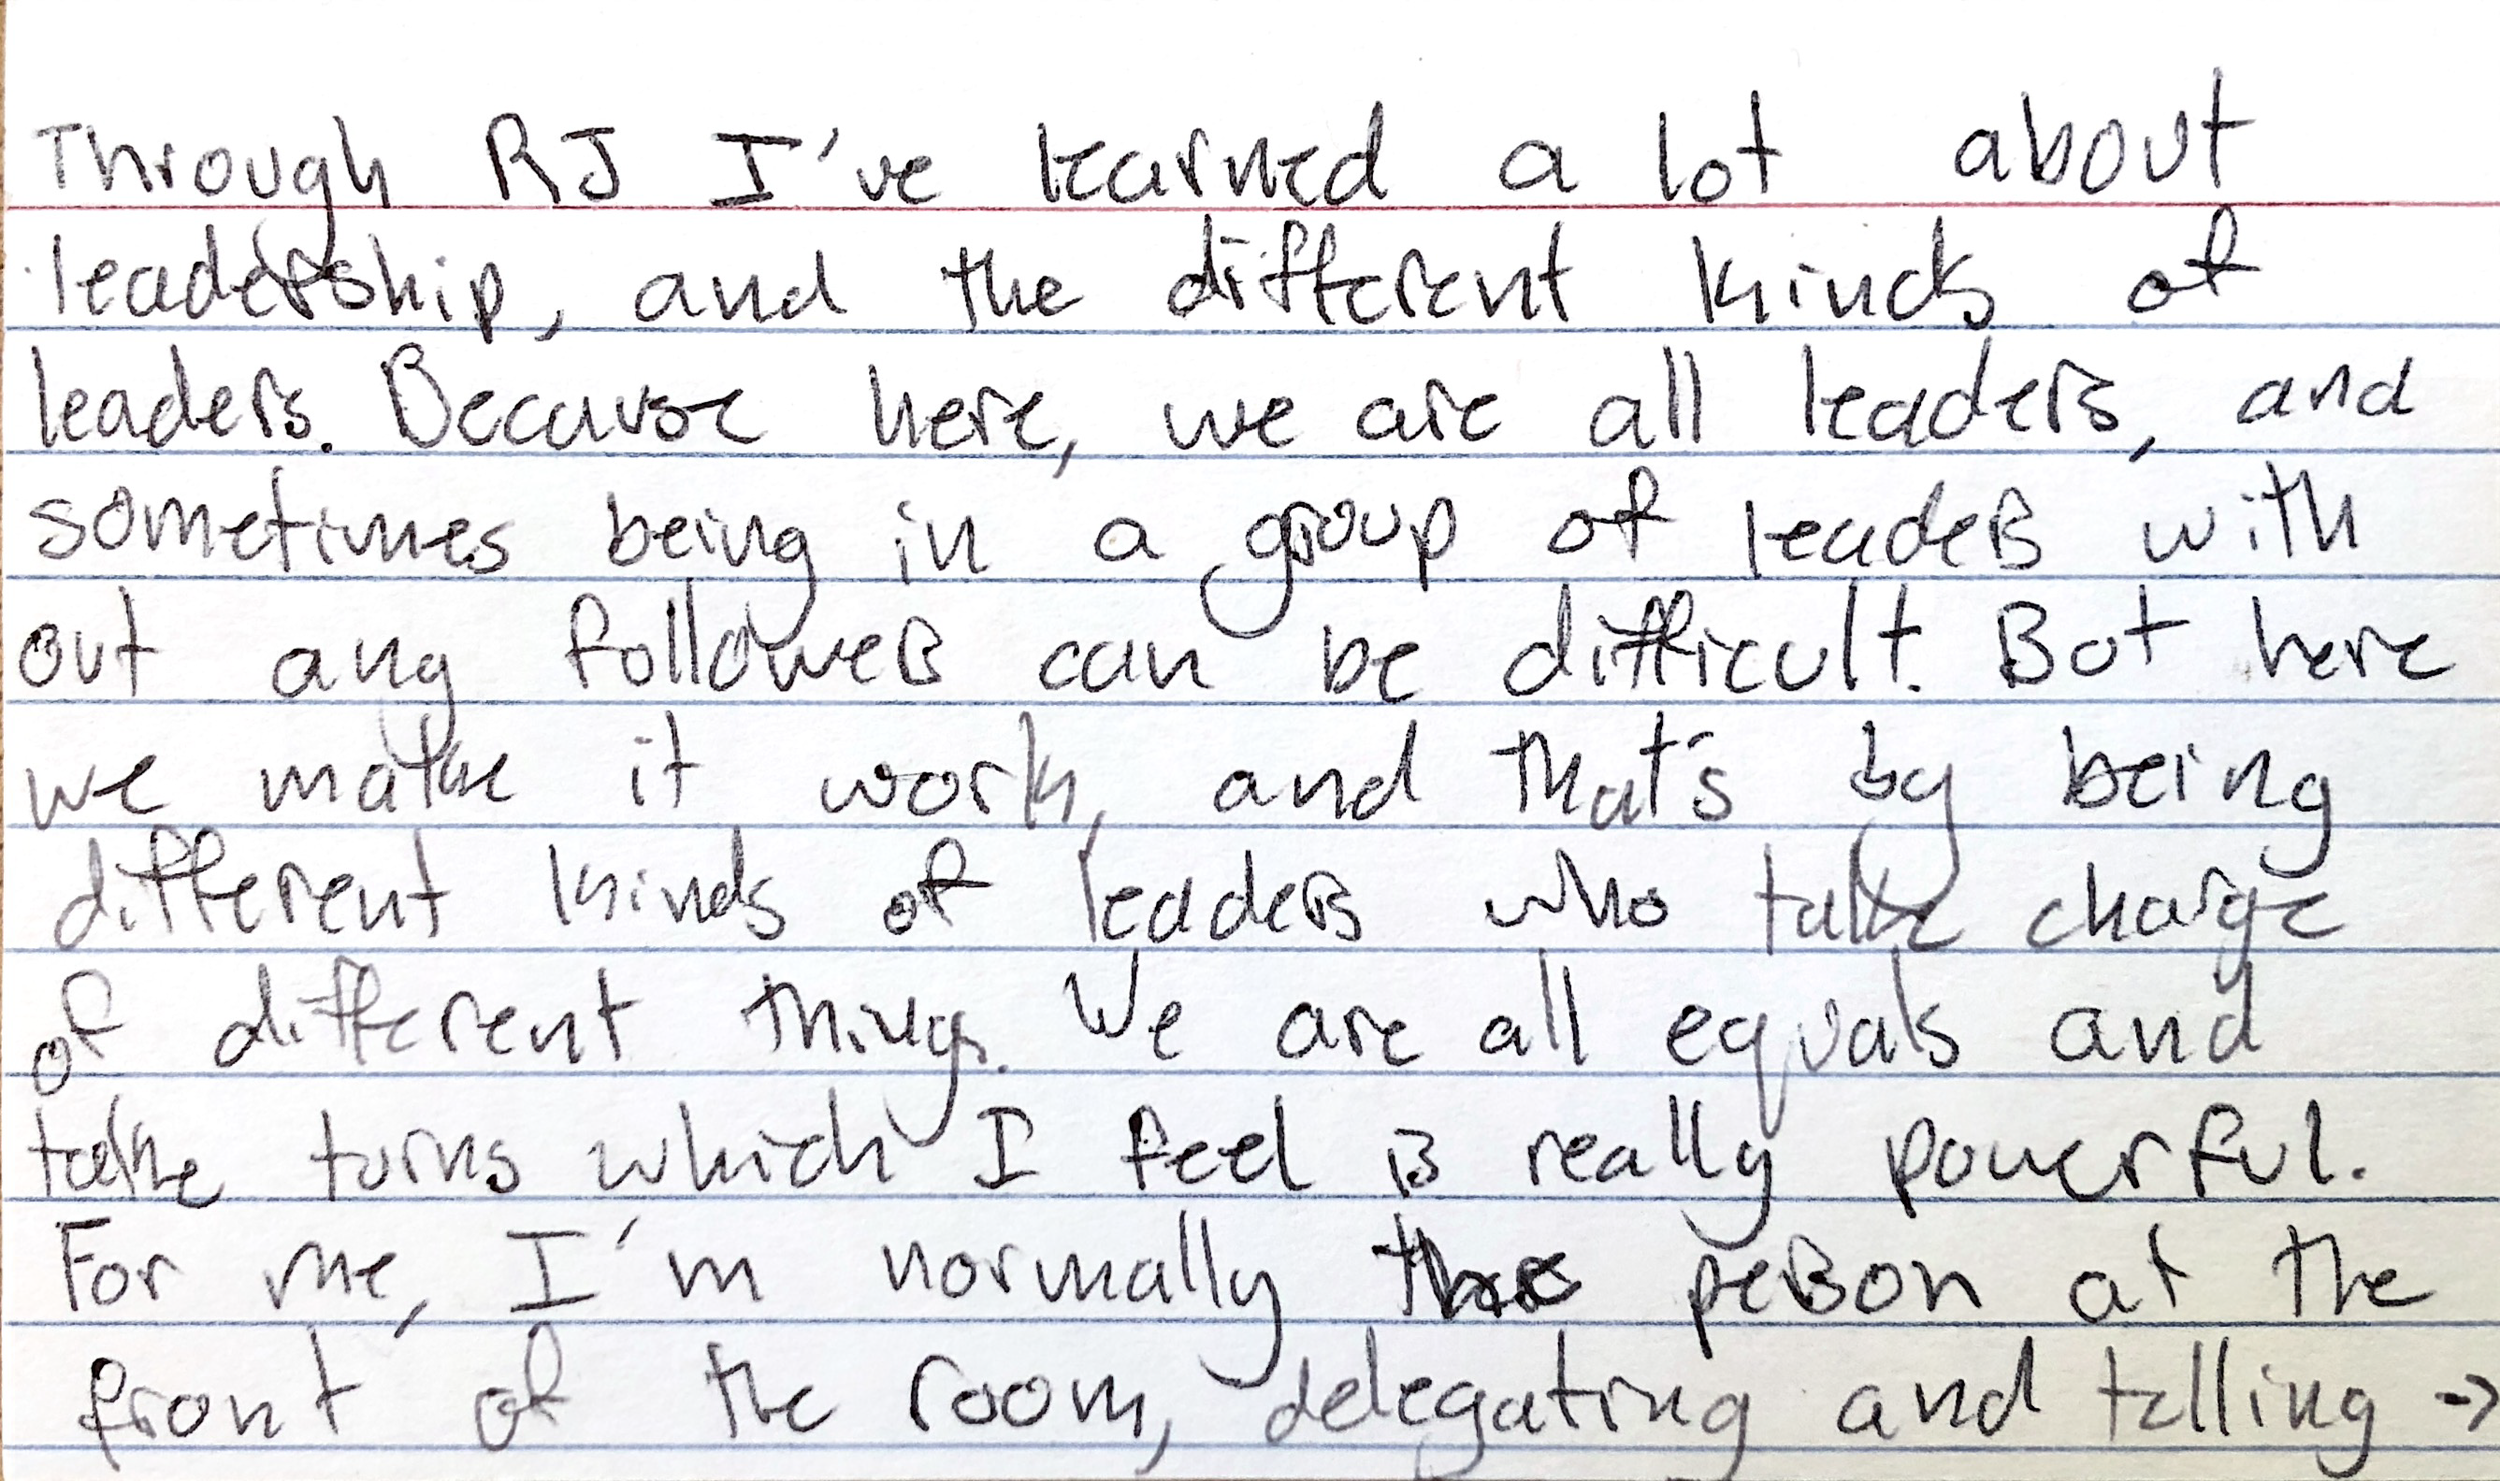 Through RJ I've learned a lot about
leadership, and the different kinds of
leaders. Because here, we are all leaders, and
sometimes being in a group of leaders with
out any followers can be difficult. But here
we make it work, and that's by being
different kinds of leaders who take charge
of different things. We are all equals and
take turns which I feel is really powerful.
For me, I'm normally the person at the
front of the room, delegating and telling →